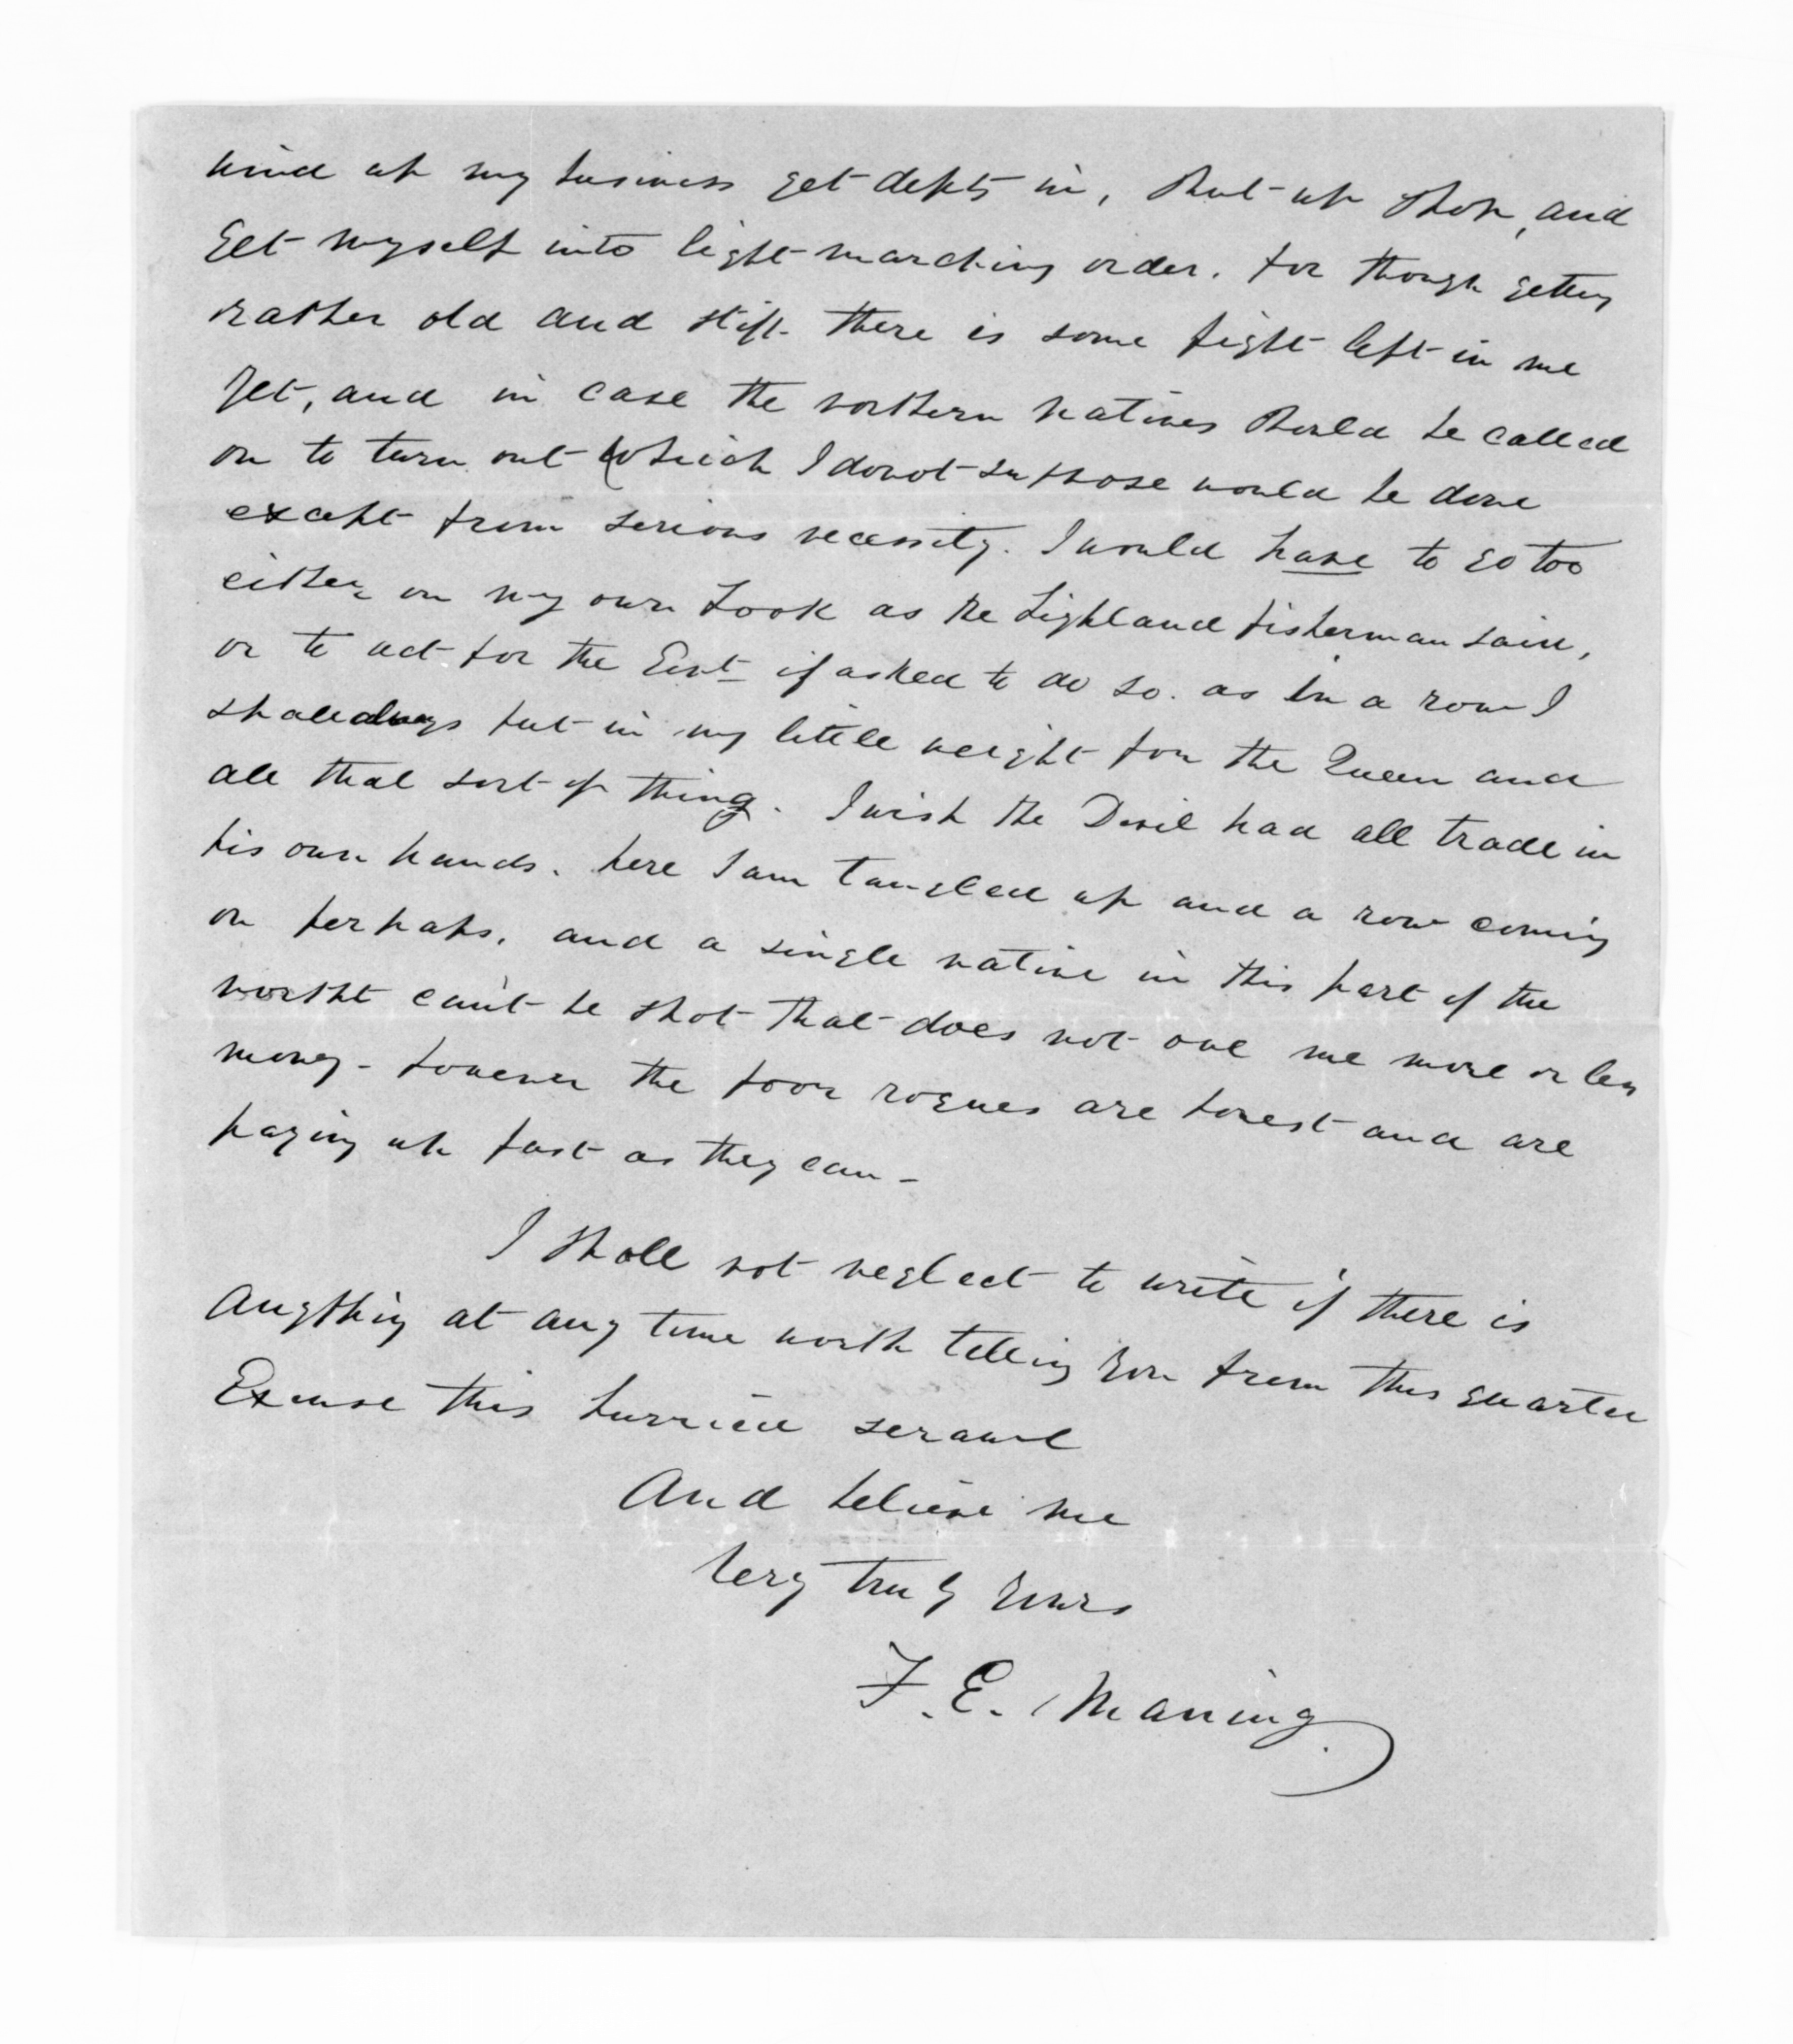 wind up my business get debts in, Shut up Shop, and
get myself into light marching order. for though getting
rather old and stiff there is some fight left in me
yet, and in case the northern natives should be called
on to turn out (which I donot suppose would be done
except from serious necessity. I would have to go too
either on my own hook as the Highland fisherman said,
or to act for the Govt if asked to do so. as in a row I
shall always put in my little weight for the Queen and
all that sort of thing. I wish the Devil had all trade in
his own hands. here I am tangled up and a row coming
on perhaps, and a single native in this part of the
north can't be shot that does not owe me more or less
money - however the poor rogues are honest and are
paying up fast as they can -
I shall not neglect to write if there is
anything at any time worth telling you from this quarter
Excuse this hurried scrawl
And believe me
Very truly yours
F. E. Maning